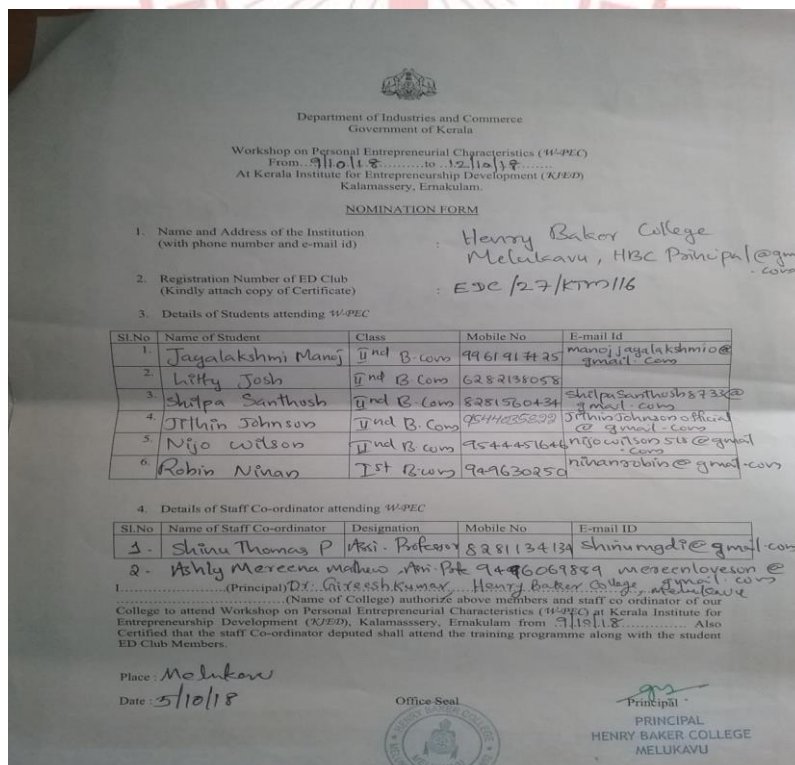 Department of Industries and Commerce
Government of Kerala
Workshop on Personal Entrepreneurial Characteristics (W-PEC)
From..9/10/18..........to ..12/10/18........
At Kerala Institute for Entrepreneurship Development (KIED)
Kalamassery, Ernakulam.
NOMINATION FORM
1. Name and Address of the Institution : Henry Baker College
(with phone number and e-mail id) Melukavu, HBC Principal@gm
.com
2. Registration Number of ED Club : EDC/27/KTM/16
(Kindly attach copy of Certificate)
3. Details of Students attending W-PEC
Sl.No Name of Student Class Mobile No E-mail Id
1. Jagalakshmi Manoj IInd B.com 9961917425 manojjagalakshmi0@
gmail.com
2. Litty Josh IInd B.Com 6282138058
3. Shilpa Santhosh IInd B.Com 8281560434 Shilpasanthosh8733@
gmail.com
4. Jithin Johnson IInd B.Com JithinJohnsonofficial
@gmail.com
5. Nijo wilson IInd B.com 9544451646 nijowilson518@gmail
.com
6. Robin Ninan Ist B.com 949630250 ninanrobin@gmail.com
4. Details of Staff Co-ordinator attending W-PEC
Sl.No Name of Staff Co-ordinator Designation Mobile No E-mail ID
1. Shinu Thomas P Assi. Professor 8281134134 shinumgdi@gmail.com
2. Ashly Mereena mathew Assi. Prof. 9496069889 mereenloyeson@
gmail.com
I......................(Principal) Dr. Gireesh Kumar, Henry Baker College, Melukavu
......................(Name of College) authorize above members and staff co ordinator of our
College to attend Workshop on Personal Entrepreneurial Characteristics (W-PEC) at Kerala Institute for
Entrepreneurship Development (KIED), Kalamasssery, Ernakulam from ..9/10/18.............. Also
Certified that the staff Co-ordinator deputed shall attend the training programme along with the student
ED Club Members.
Place : Melukavu
Date : 5/10/18 Office Seal Principal
PRINCIPAL
HENRY BAKER COLLEGE
MELUKAVU
HENRY BAKER COLLEGE